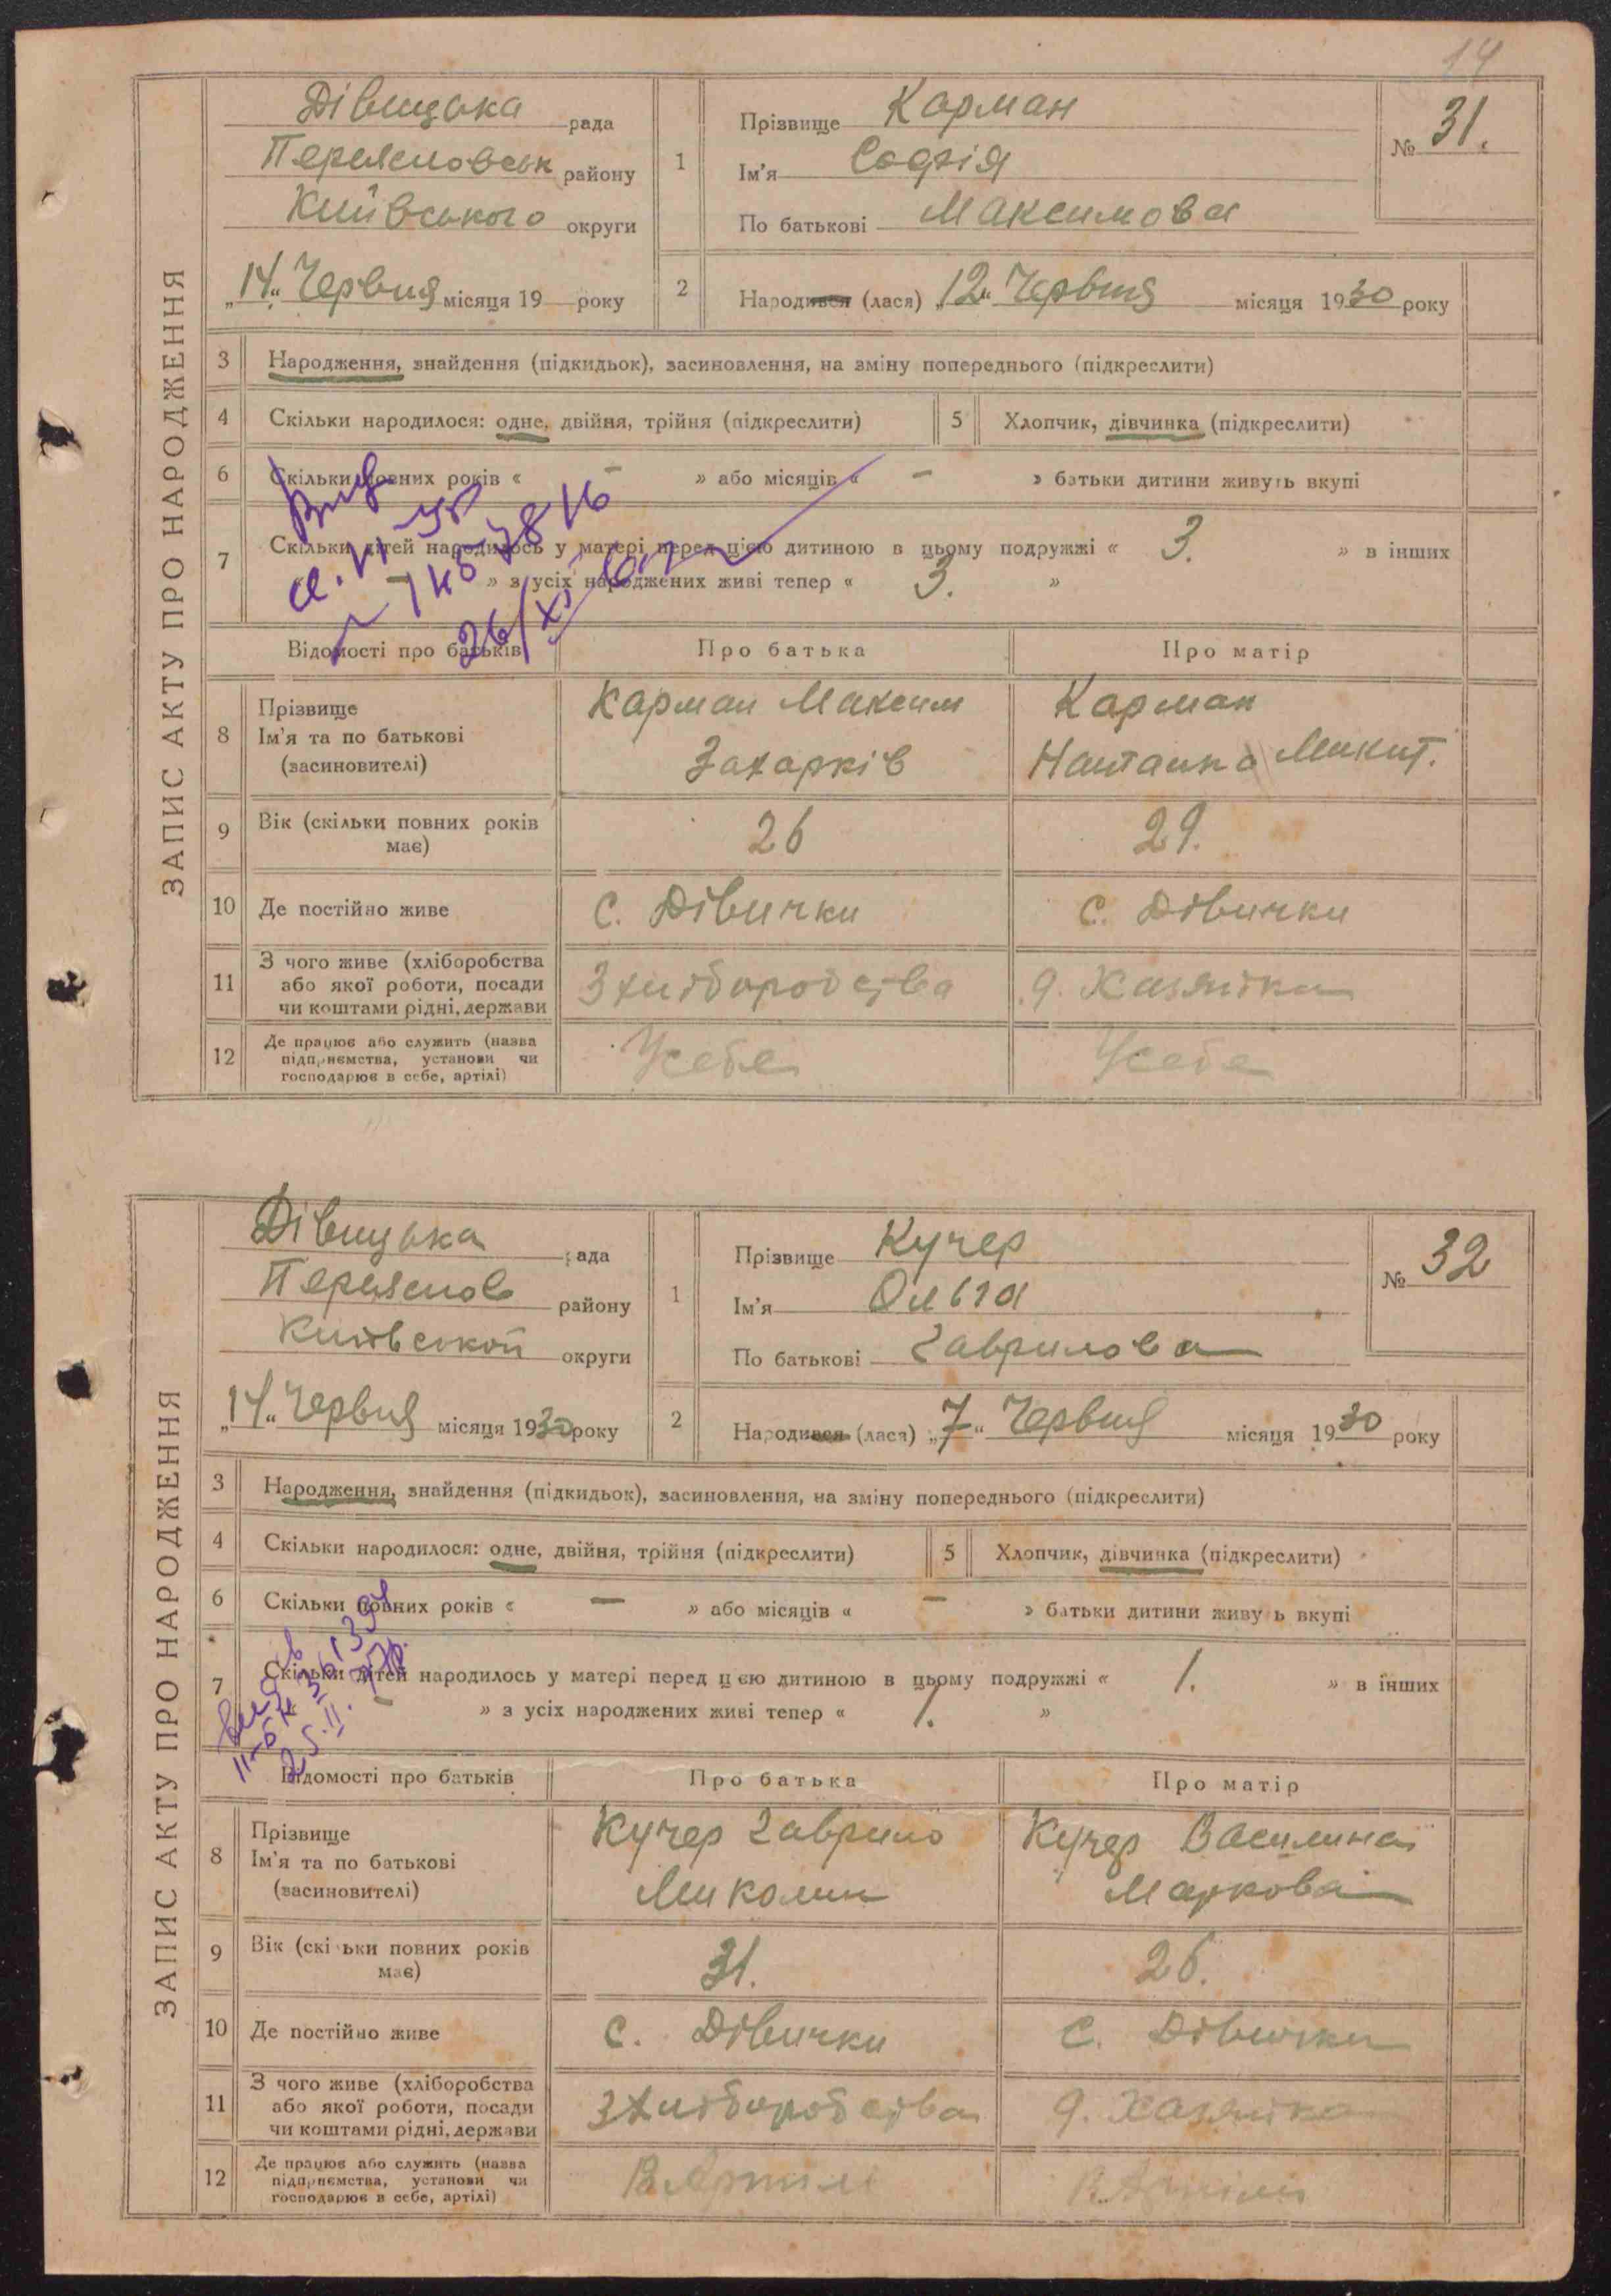 14
ЗАПИС АКТУ ПРО НАРОДЖЕННЯ
Дівицька рада
Переясловськ району
Київського округи
„14“ Червня місяця 19 року
1
Прізвище Карман
Ім'я Софія
По батькові Максимова
№ 31.
2
Народився (лася) „12“ Червня місяця 1930 року
3 Народження, знайдення (підкидьок), засиновлення, на зміну попереднього (підкреслити)
4 Скільки народилося: одне, двійня, трійня (підкреслити) 5 Хлопчик, дівчинка (підкреслити)
6 Скільки повних років « – » або місяців « – » батьки дитини живуть вкупі
7 Скільки дітей народилось у матері перед цією дитиною в цьому подружжі « 3. » в інших
« – » з усіх народжених живі тепер « 3. »
Відомості про батьків Про батька Про матір
8 Прізвище
Ім'я та по батькові
(засиновителі)
Карман Максим
Захарків
Карман
Микит.
9 Вік (скільки повних років
має)
26 29.
10 Де постійно живе с. Дівички с. Дівички
11 З чого живе (хліборобства
або якої роботи, посади
чи коштами рідні, держави
З хліборобства д. Хазяйка
12 Де працює або служить (назва
підприємства, установи чи
господарює в себе, артілі)
У себе У себе
ЗАПИС АКТУ ПРО НАРОДЖЕННЯ
Дівицька рада
Переяслов району
Київської округи
„14“ Червня місяця 1930 року
1
Прізвище Кучер
Ім'я Ольга
По батькові Гаврилова
№ 32
2
Народився (лася) „7“ Червня місяця 1930 року
3 Народження, знайдення (підкидьок), засиновлення, на зміну попереднього (підкреслити)
4 Скільки народилося: одне, двійня, трійня (підкреслити) 5 Хлопчик, дівчинка (підкреслити)
6 Скільки повних років « — » або місяців « – » батьки дитини живу ь вкупі
7 Скільки дітей народилось у матері перед цією дитиною в цьому подружжі « 1. » в інших
« – » з усіх народжених живі тепер « 1. »
Відомості про батьків Про батька Про матір
8 Прізвище
Ім'я та по батькові
(засиновителі)
Кучер Гаврило
Миколин
Кучер Василина
Маркова
9 Вік (скі ьки повних років
має)
31. 26.
10 Де постійно живе с. Дівички с. Дівички
11 З чого живе (хліборобства
або якої роботи, посади
чи коштами рідні, держави
З хліборобства д. Хазяйка
12 Де працює або служить (назва
підприємства, установи чи
господарює в себе, артілі)
В Артілі В Артілі